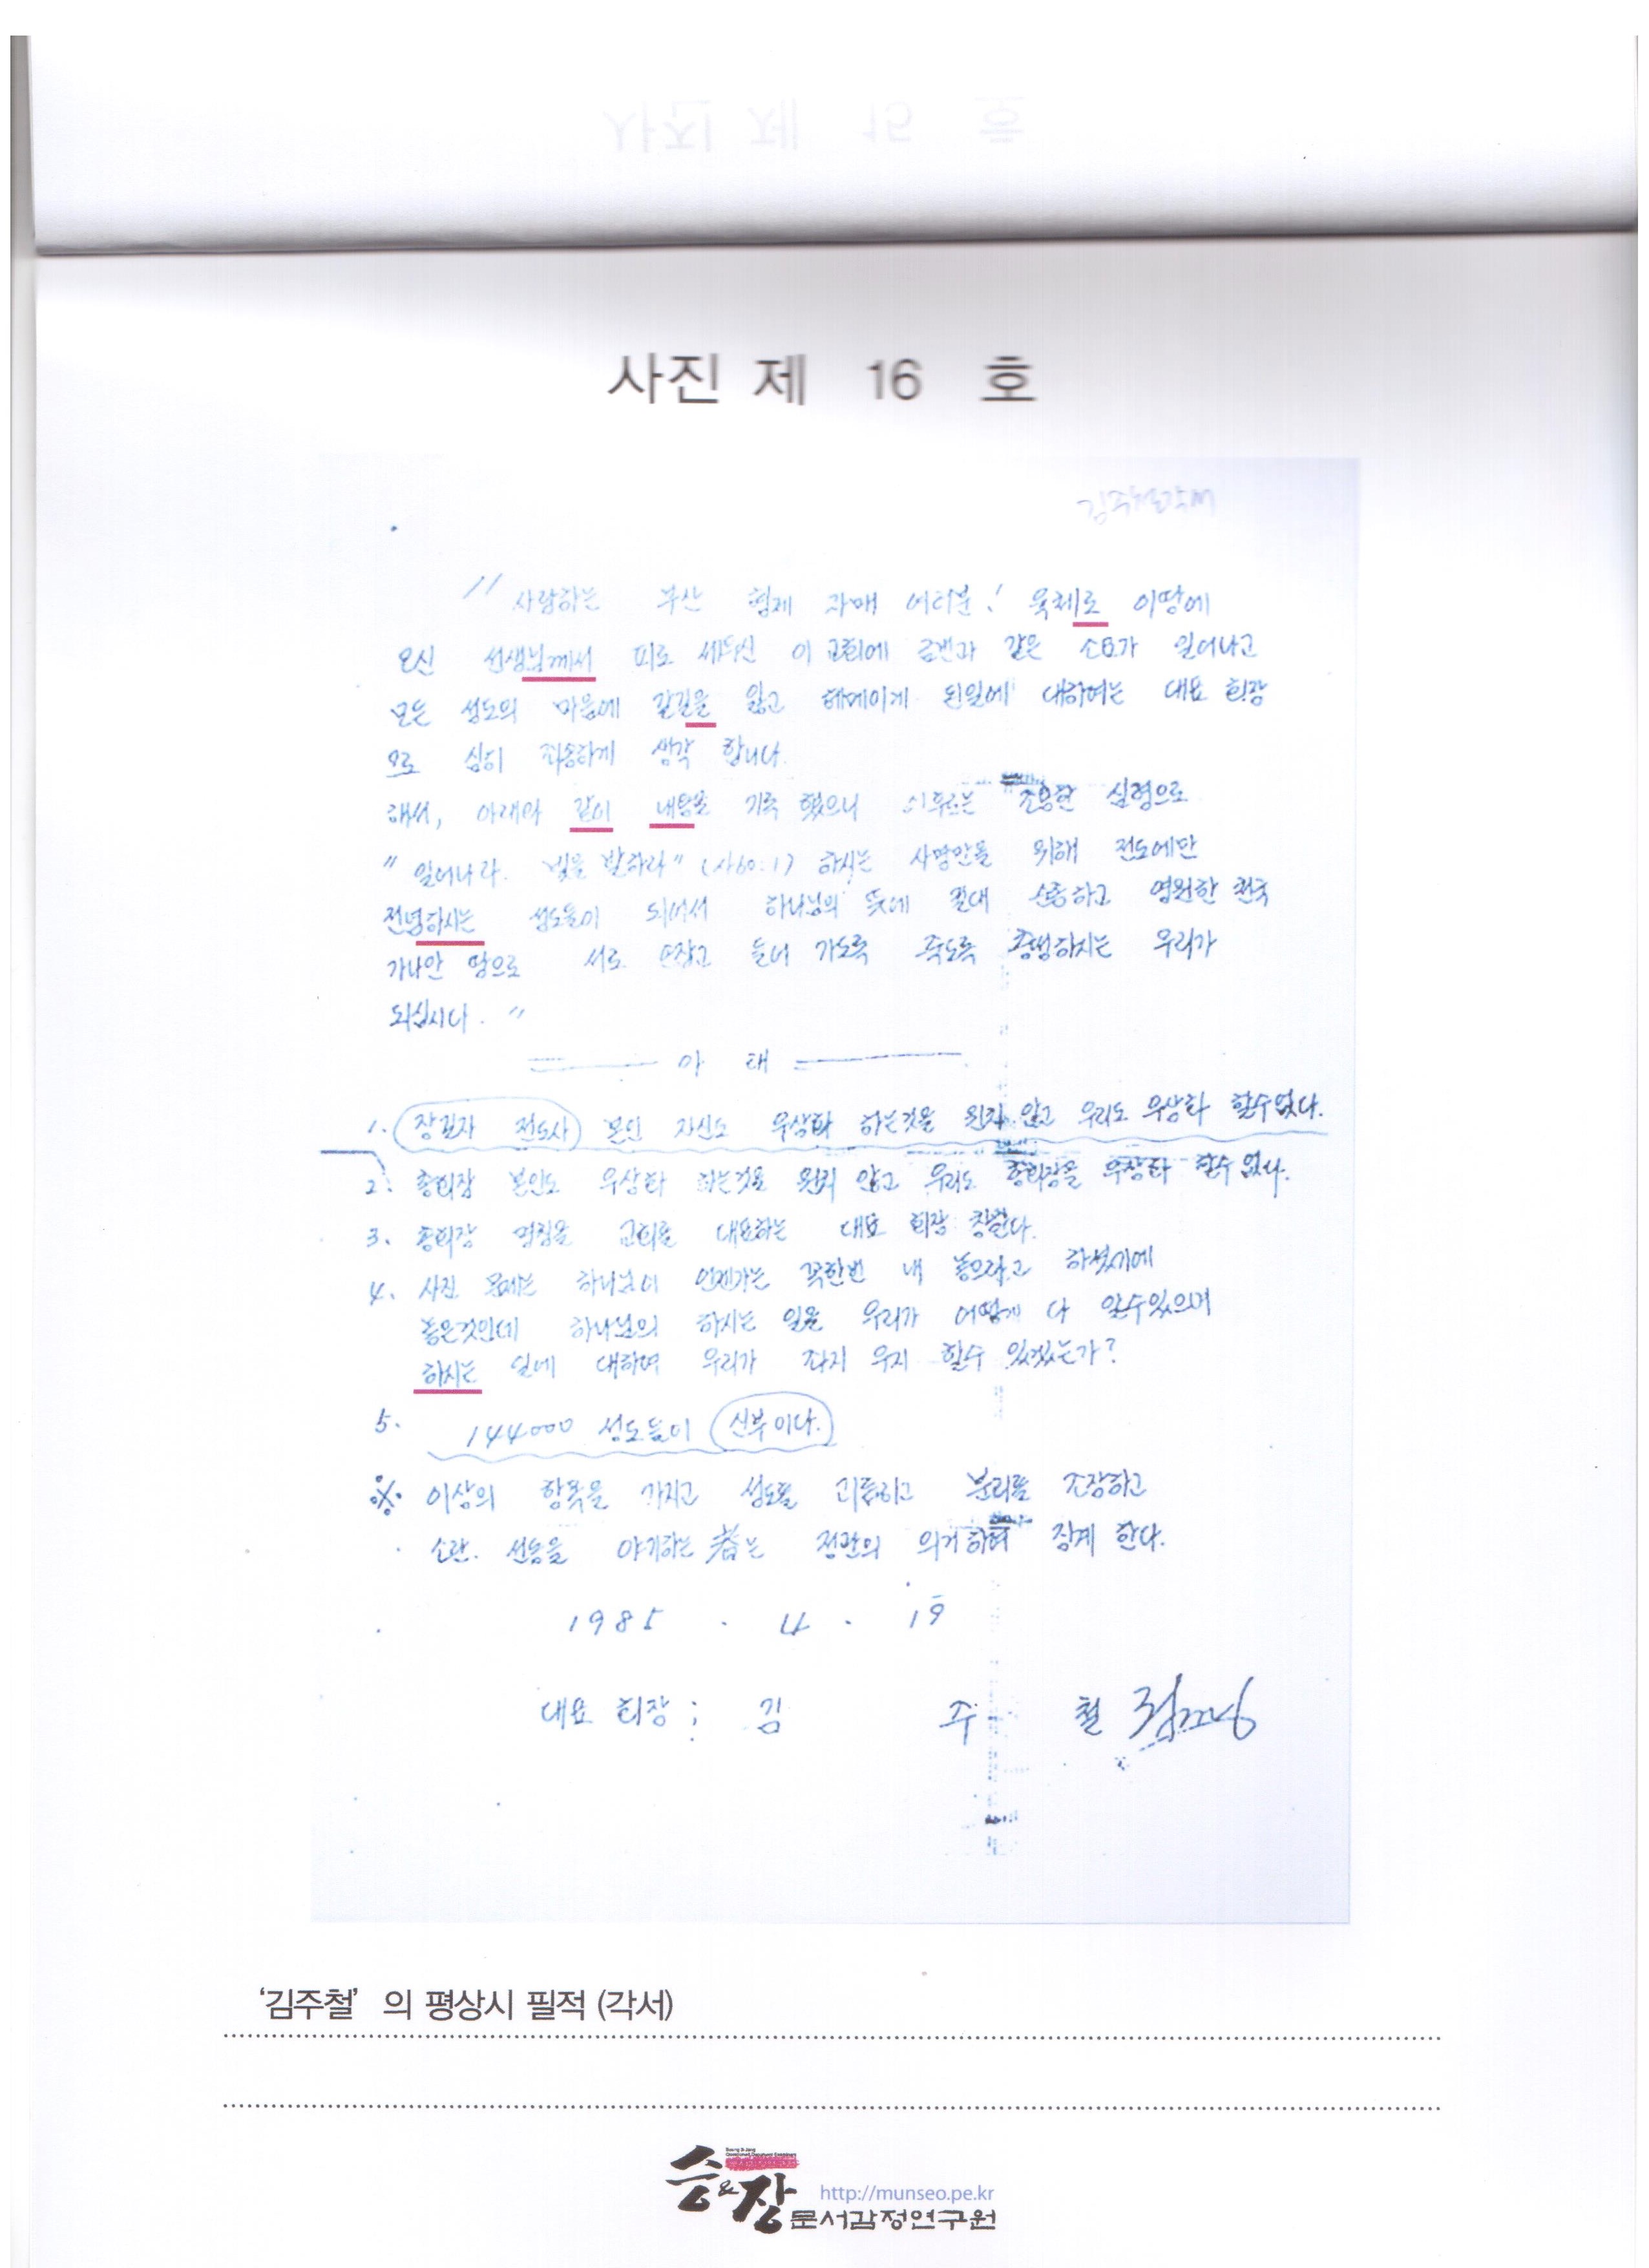 사진 제 16 호
김주철각서
"사랑하는 부산 형제 자매 여러분! 육체로 이땅에
오신 선생님께서 피로 세우신 이 교회에 금번과 같은 소요가 일어나고
모든 성도의 마음에 갈길을 잃고 헤메이게 된일에 대하여는 대표 회장
으로 심히 죄송하게 생각 합니다.
해서, 아래와 같이 내용을 기록 했으니 이후로는 조용한 심령으로
"일어나라. 빛을 발하라" (사60:1) 하시는 사명만을 위해 전도에만
전념하시는 성도들이 되어서 하나님의 뜻에 절대 순종하고 영원한 천국
가나안 땅으로 서로 손잡고 들어 가도록 죽도록 충성하시는 우리가
되십시다. "
아 래
1. 장길자 전도사 본인 자신도 우상화 하는것을 원치 않고 우리도 우상화 할수없다.
2. 총회장 본인도 우상화 하는것을 원치 않고 우리도 총회장을 우상화 할수 없다.
3. 총회장 명칭을 교회를 대표하는 대표 회장 칭한다.
4. 사진 문제는 하나님이 언젠가는 꼭한번 내 놓으라고 하셨기에
놓은것인데 하나님의 하시는 일을 우리가 어떻게 다 알수있으며
하시는 일에 대하여 우리가 좌지 우지 할수 있겠는가?
5. 144000 성도들이 신부이다.
※ 이상의 항목을 가지고 성도를 괴롭히고 분리를 조장하고
소란. 선동을 야기하는 者는 정관의 의거하여 징계 한다.
1985 . 4 . 19
대표 회장 ; 김 주 철
'김주철' 의 평상시 필적 (각서)
승&장
http://munseo.pe.kr
문서감정연구원